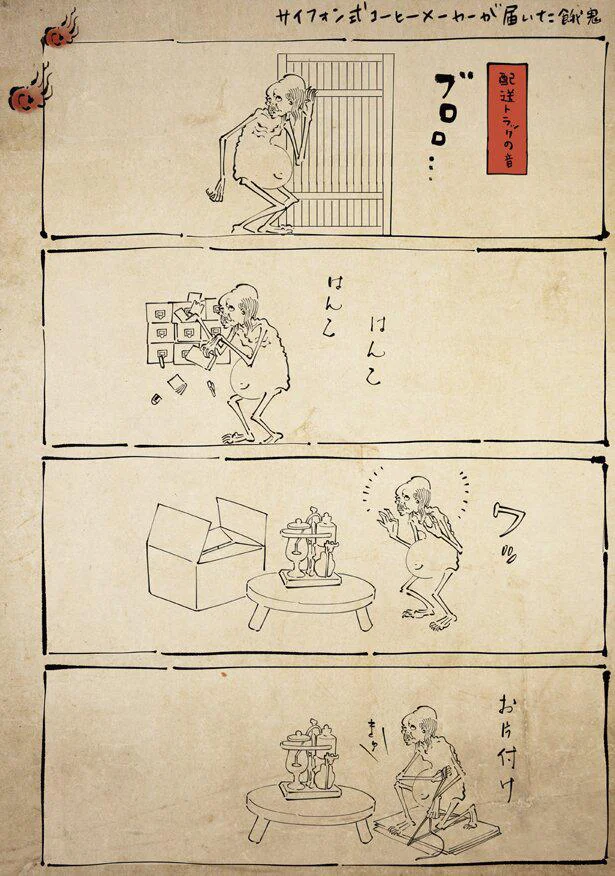 サイフォン式コーヒーメーカーが届いた餓鬼
配送トラックの音
ブロロ…
はんこ
はんこ
ワッ
お片付け
きゅっ